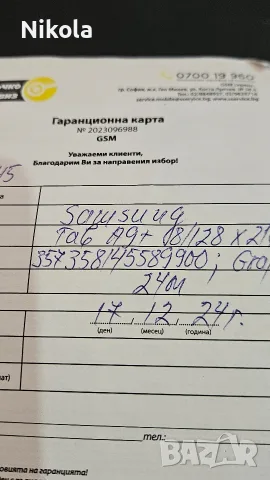 Nikola
0700 19 960
Гаранционна карта
№ 2023096988
GSM
Уважаеми клиенти,
Благодарим Ви за направения избор!
Samsung
Tab A9+ 8/128 X21
357358145589900; Gra
24м
17 . 12 . 24г.
(ден) (месец) (година)
тел.:
овията на гаранцията!
Bazar